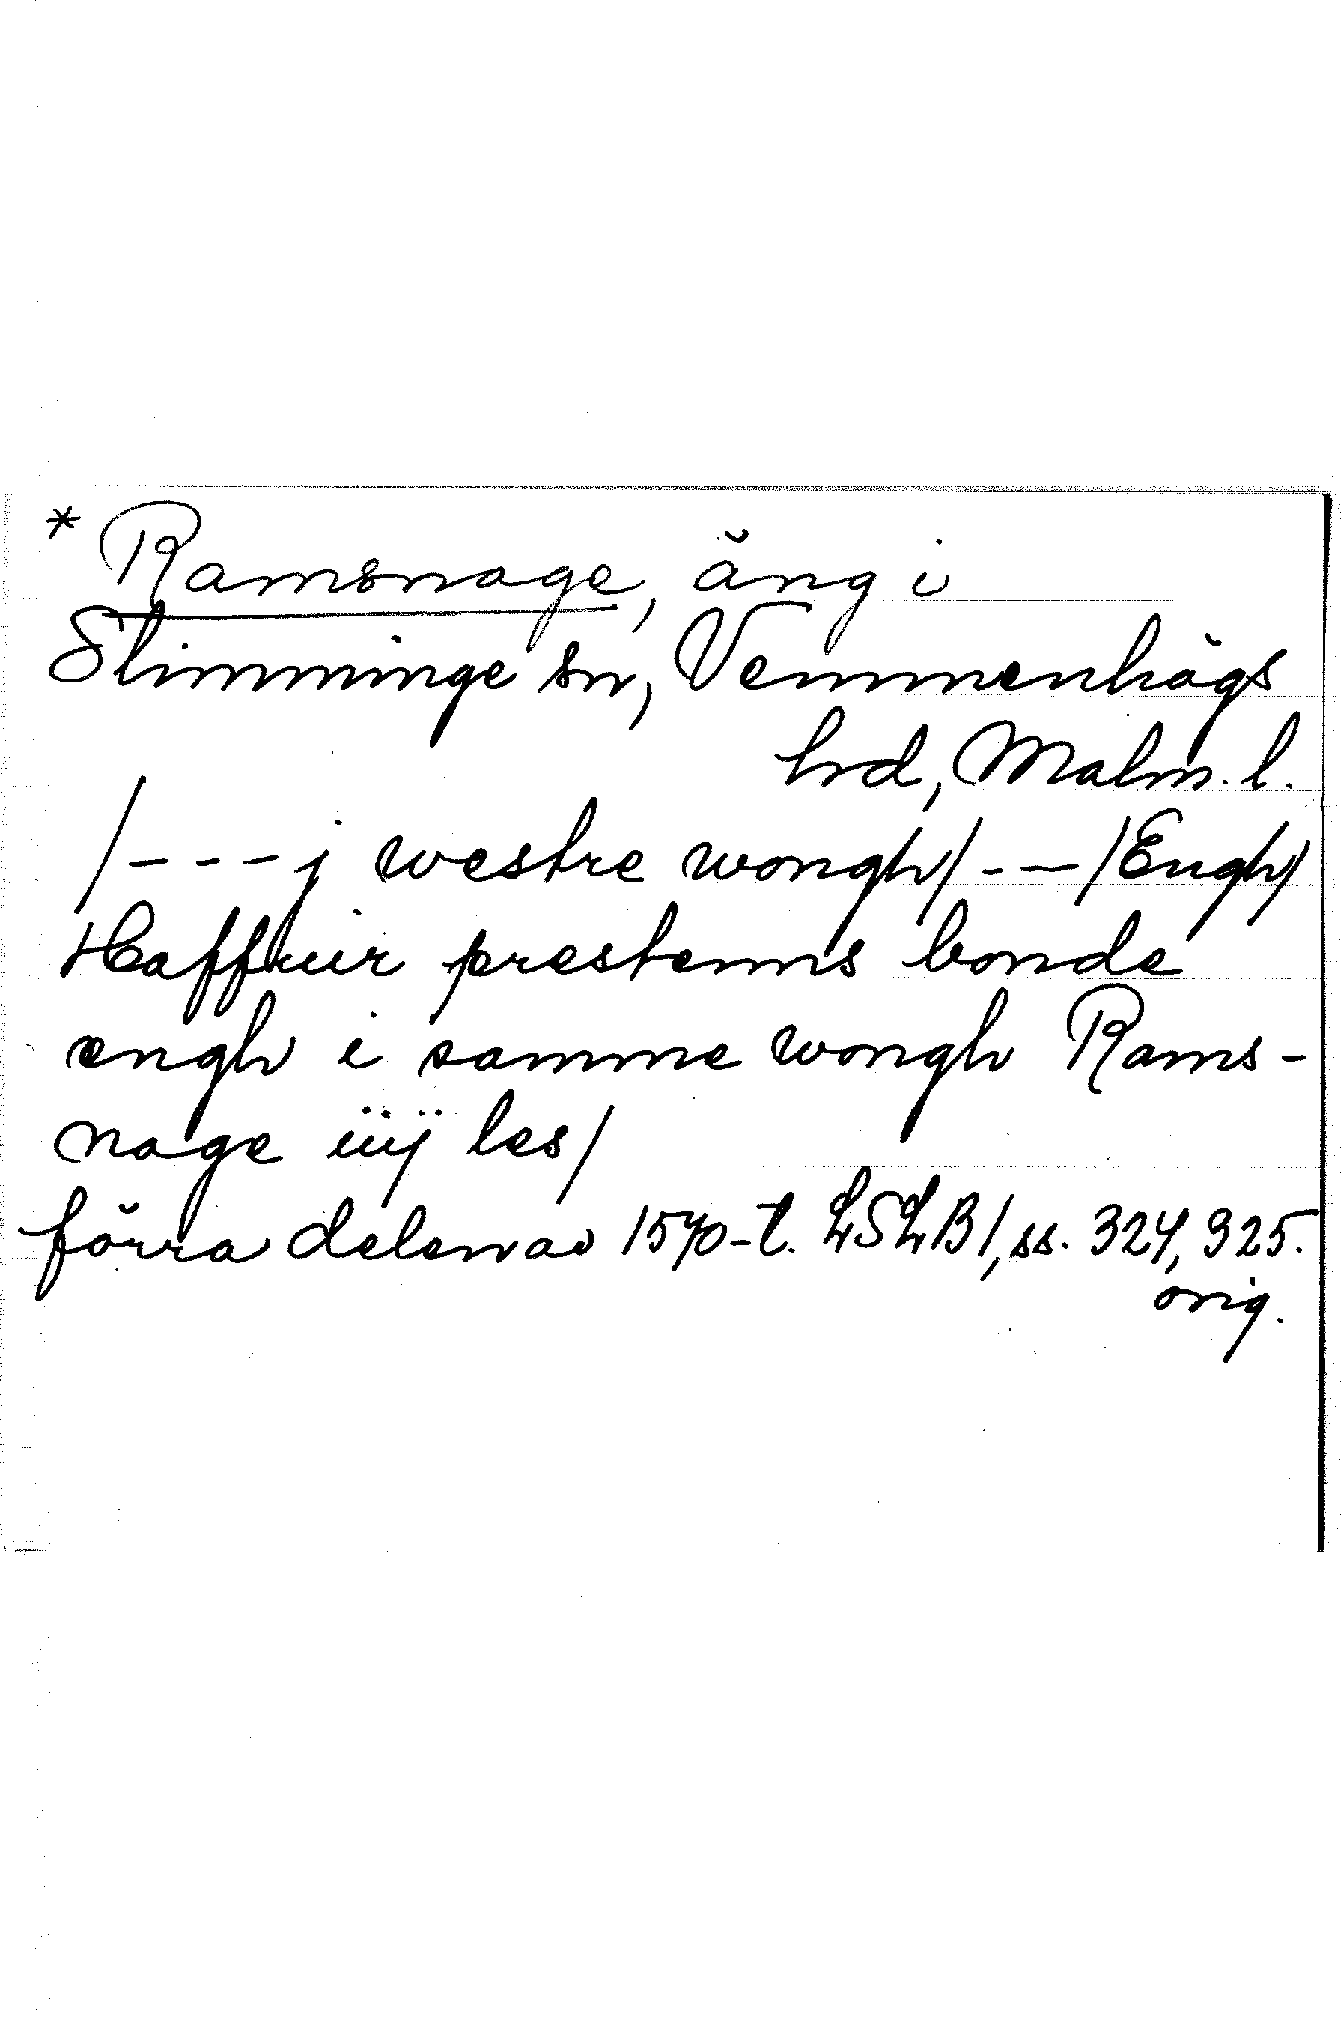 * Ramsnage, äng i
Slimminge sn, Vemmenhögs
hrd, Malm. l.
/---j westre wongh/---/Engh/
Haffuir prestenns bonde
engh i samme wongh Rams-
nage iiij les/
förra delen av 1570-t. LSLB1, ss. 324, 325.
orig.